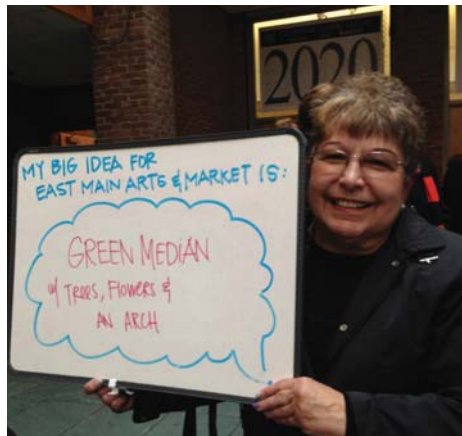 2020
MY BIG IDEA FOR
EAST MAIN ARTS & MARKET IS:
GREEN MEDIAN
w/ TREES, FLOWERS &
AN ARCH